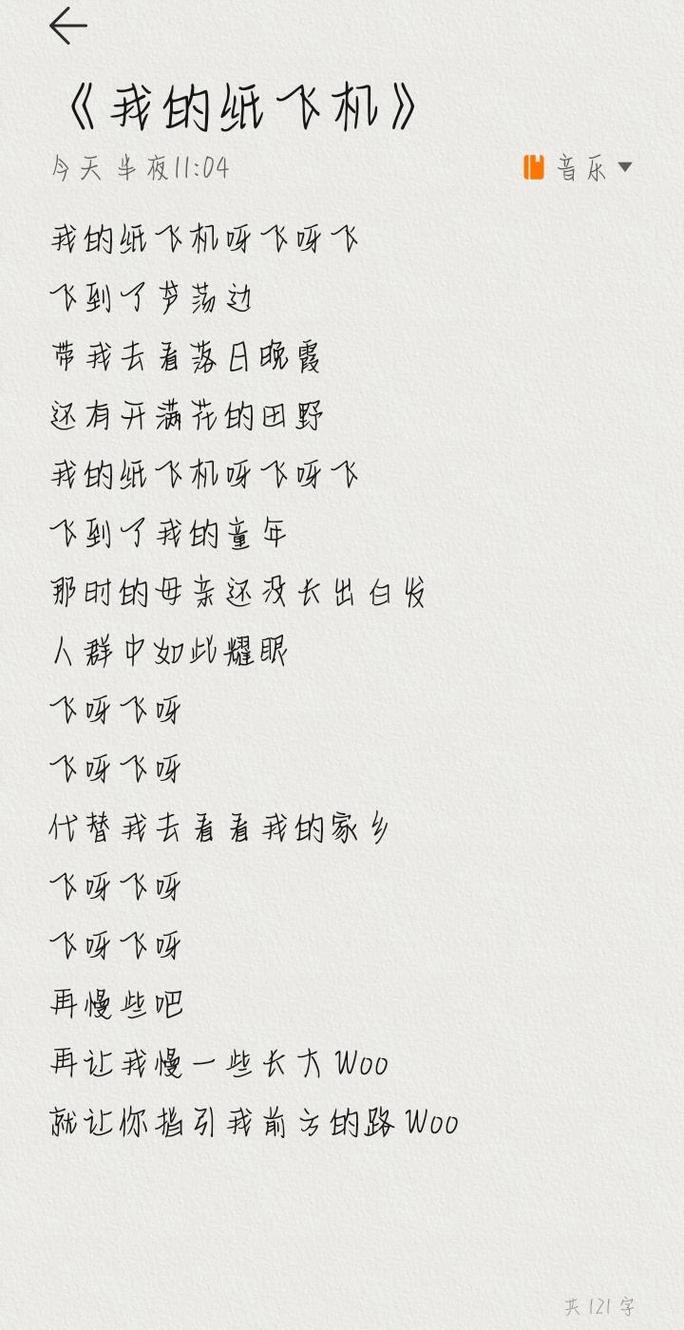 《我的纸飞机》
今天 半夜11:04 音乐
我的纸飞机呀飞呀飞
飞到了芦荡边
带我去看落日晚霞
还有开满花的田野
我的纸飞机呀飞呀飞
飞到了我的童年
那时的母亲还没长出白发
人群中如此耀眼
飞呀飞呀
飞呀飞呀
代替我去看看我的家乡
飞呀飞呀
飞呀飞呀
再慢些吧
再让我慢一些长大 Woo
就让你指引我前方的路 Woo
共 121 字